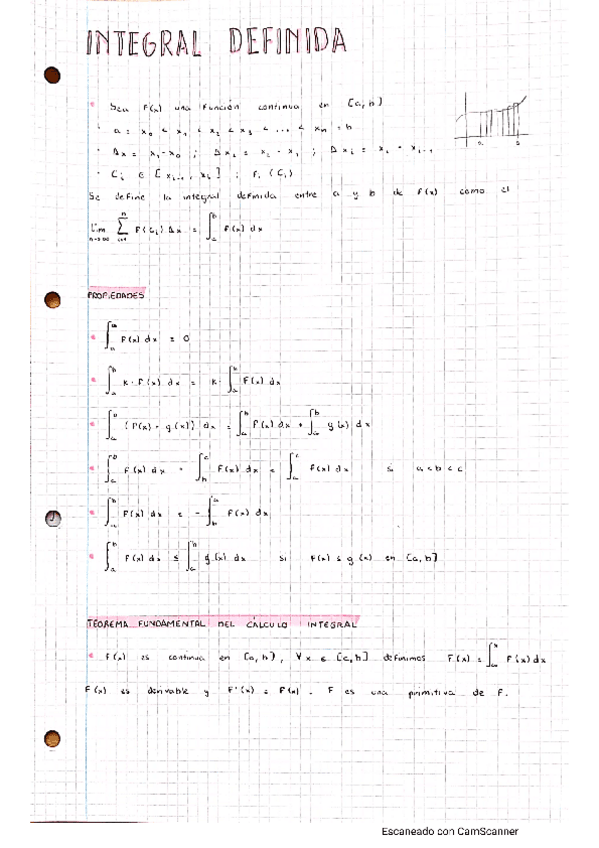 INTEGRAL DEFINIDA
Sea f(x) una función continua en [a, b]
a = x₀ < x₁ < x₂ < x₃ < ... < xₙ = b
Δx = x₁ - x₀ ; Δx₂ = x₂ - x₁ ; Δxᵢ = xᵢ - xᵢ₋₁
Cᵢ ∈ [xᵢ₋₁, xᵢ] ; f(Cᵢ)
Se define la integral definida entre a y b de f(x) como el
lim n→∞ ∑ⁿᵢ₌₁ f(Cᵢ) Δx = ∫ₐᵇ f(x) dx
PROPIEDADES
∫ₐᵃ f(x) dx = 0
∫ₐᵇ k · f(x) dx = k · ∫ₐᵇ f(x) dx
∫ₐᵇ (f(x) + g(x)) dx = ∫ₐᵇ f(x) dx + ∫ₐᵇ g(x) dx
∫ₐᵇ f(x) dx + ∫_b^c f(x) dx = ∫ₐᶜ f(x) dx si a<b<c
∫ₐᵇ f(x) dx = -∫_b^a f(x) dx
∫ₐᵇ f(x) dx ≤ ∫ₐᵇ g(x) dx si f(x) ≤ g(x) en [a, b]
TEOREMA FUNDAMENTAL DEL CÁLCULO INTEGRAL
f(x) es continua en [a, b], ∀x ∈ [a, b] definimos F(x) = ∫ₐˣ f(x) dx
F(x) es derivable y F'(x) = f(x). F es una primitiva de f.
Escaneado con CamScanner